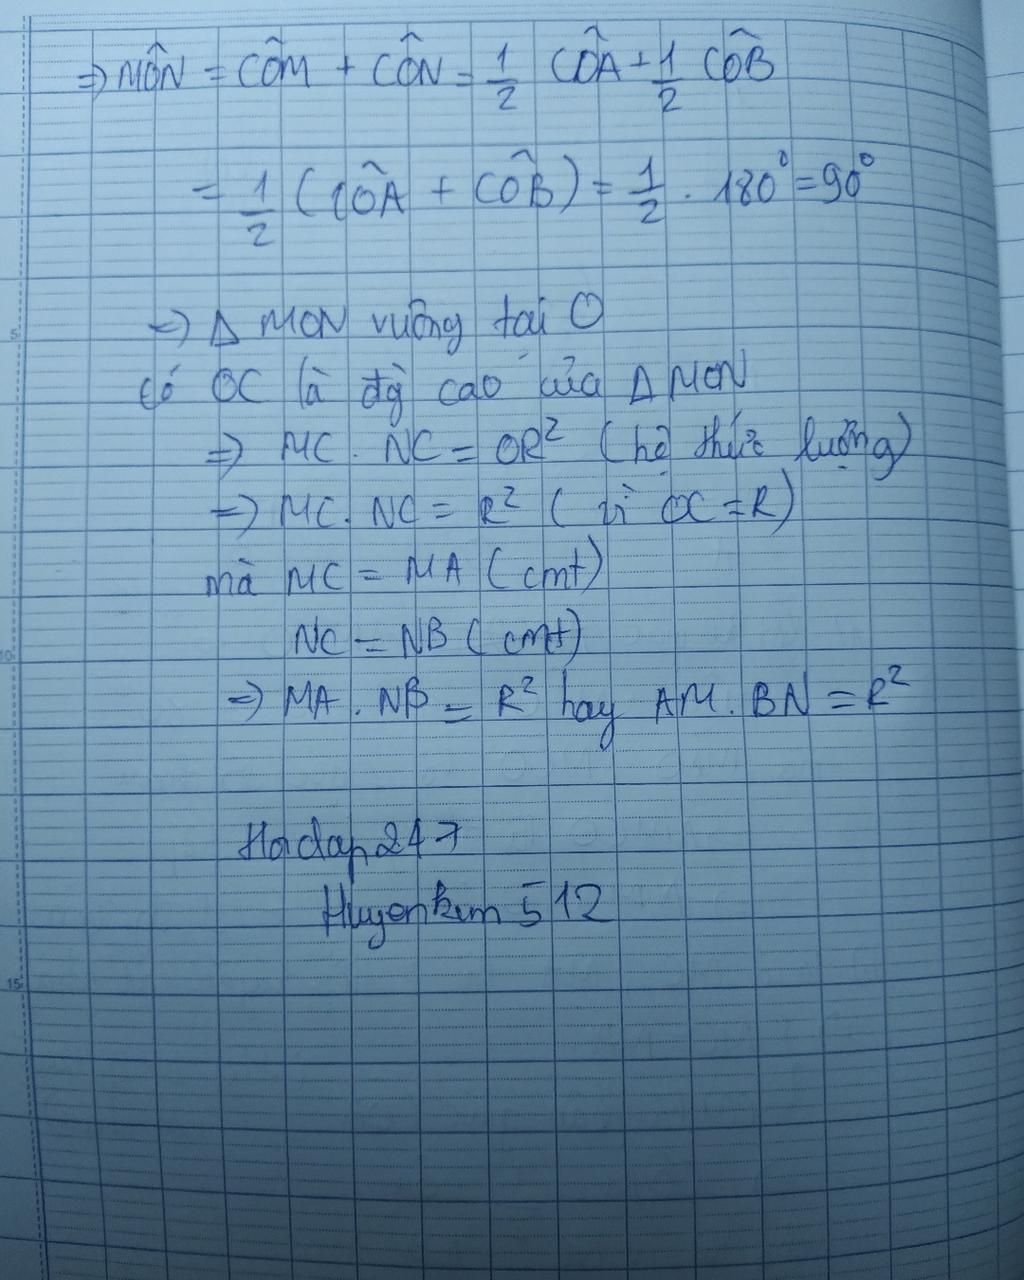 ⇒ MÔN = CÔM + CÔN = 1/2 CÔA + 1/2 CÔB
= 1/2 (CÔA + CÔB) = 1/2 . 180° = 90°
⇒ Δ MON vuông tại O
Có OC là đg̀ cao của Δ MON
⇒ MC . NC = OR² (hệ thức lượng)
⇒ MC . NC = R² (vì OC = R)
mà MC = MA (cmt)
NC = NB (cmt)
⇒ MA . NB = R² hay AM . BN = R²
Hoidap247
Huyenkem512
5
10
15